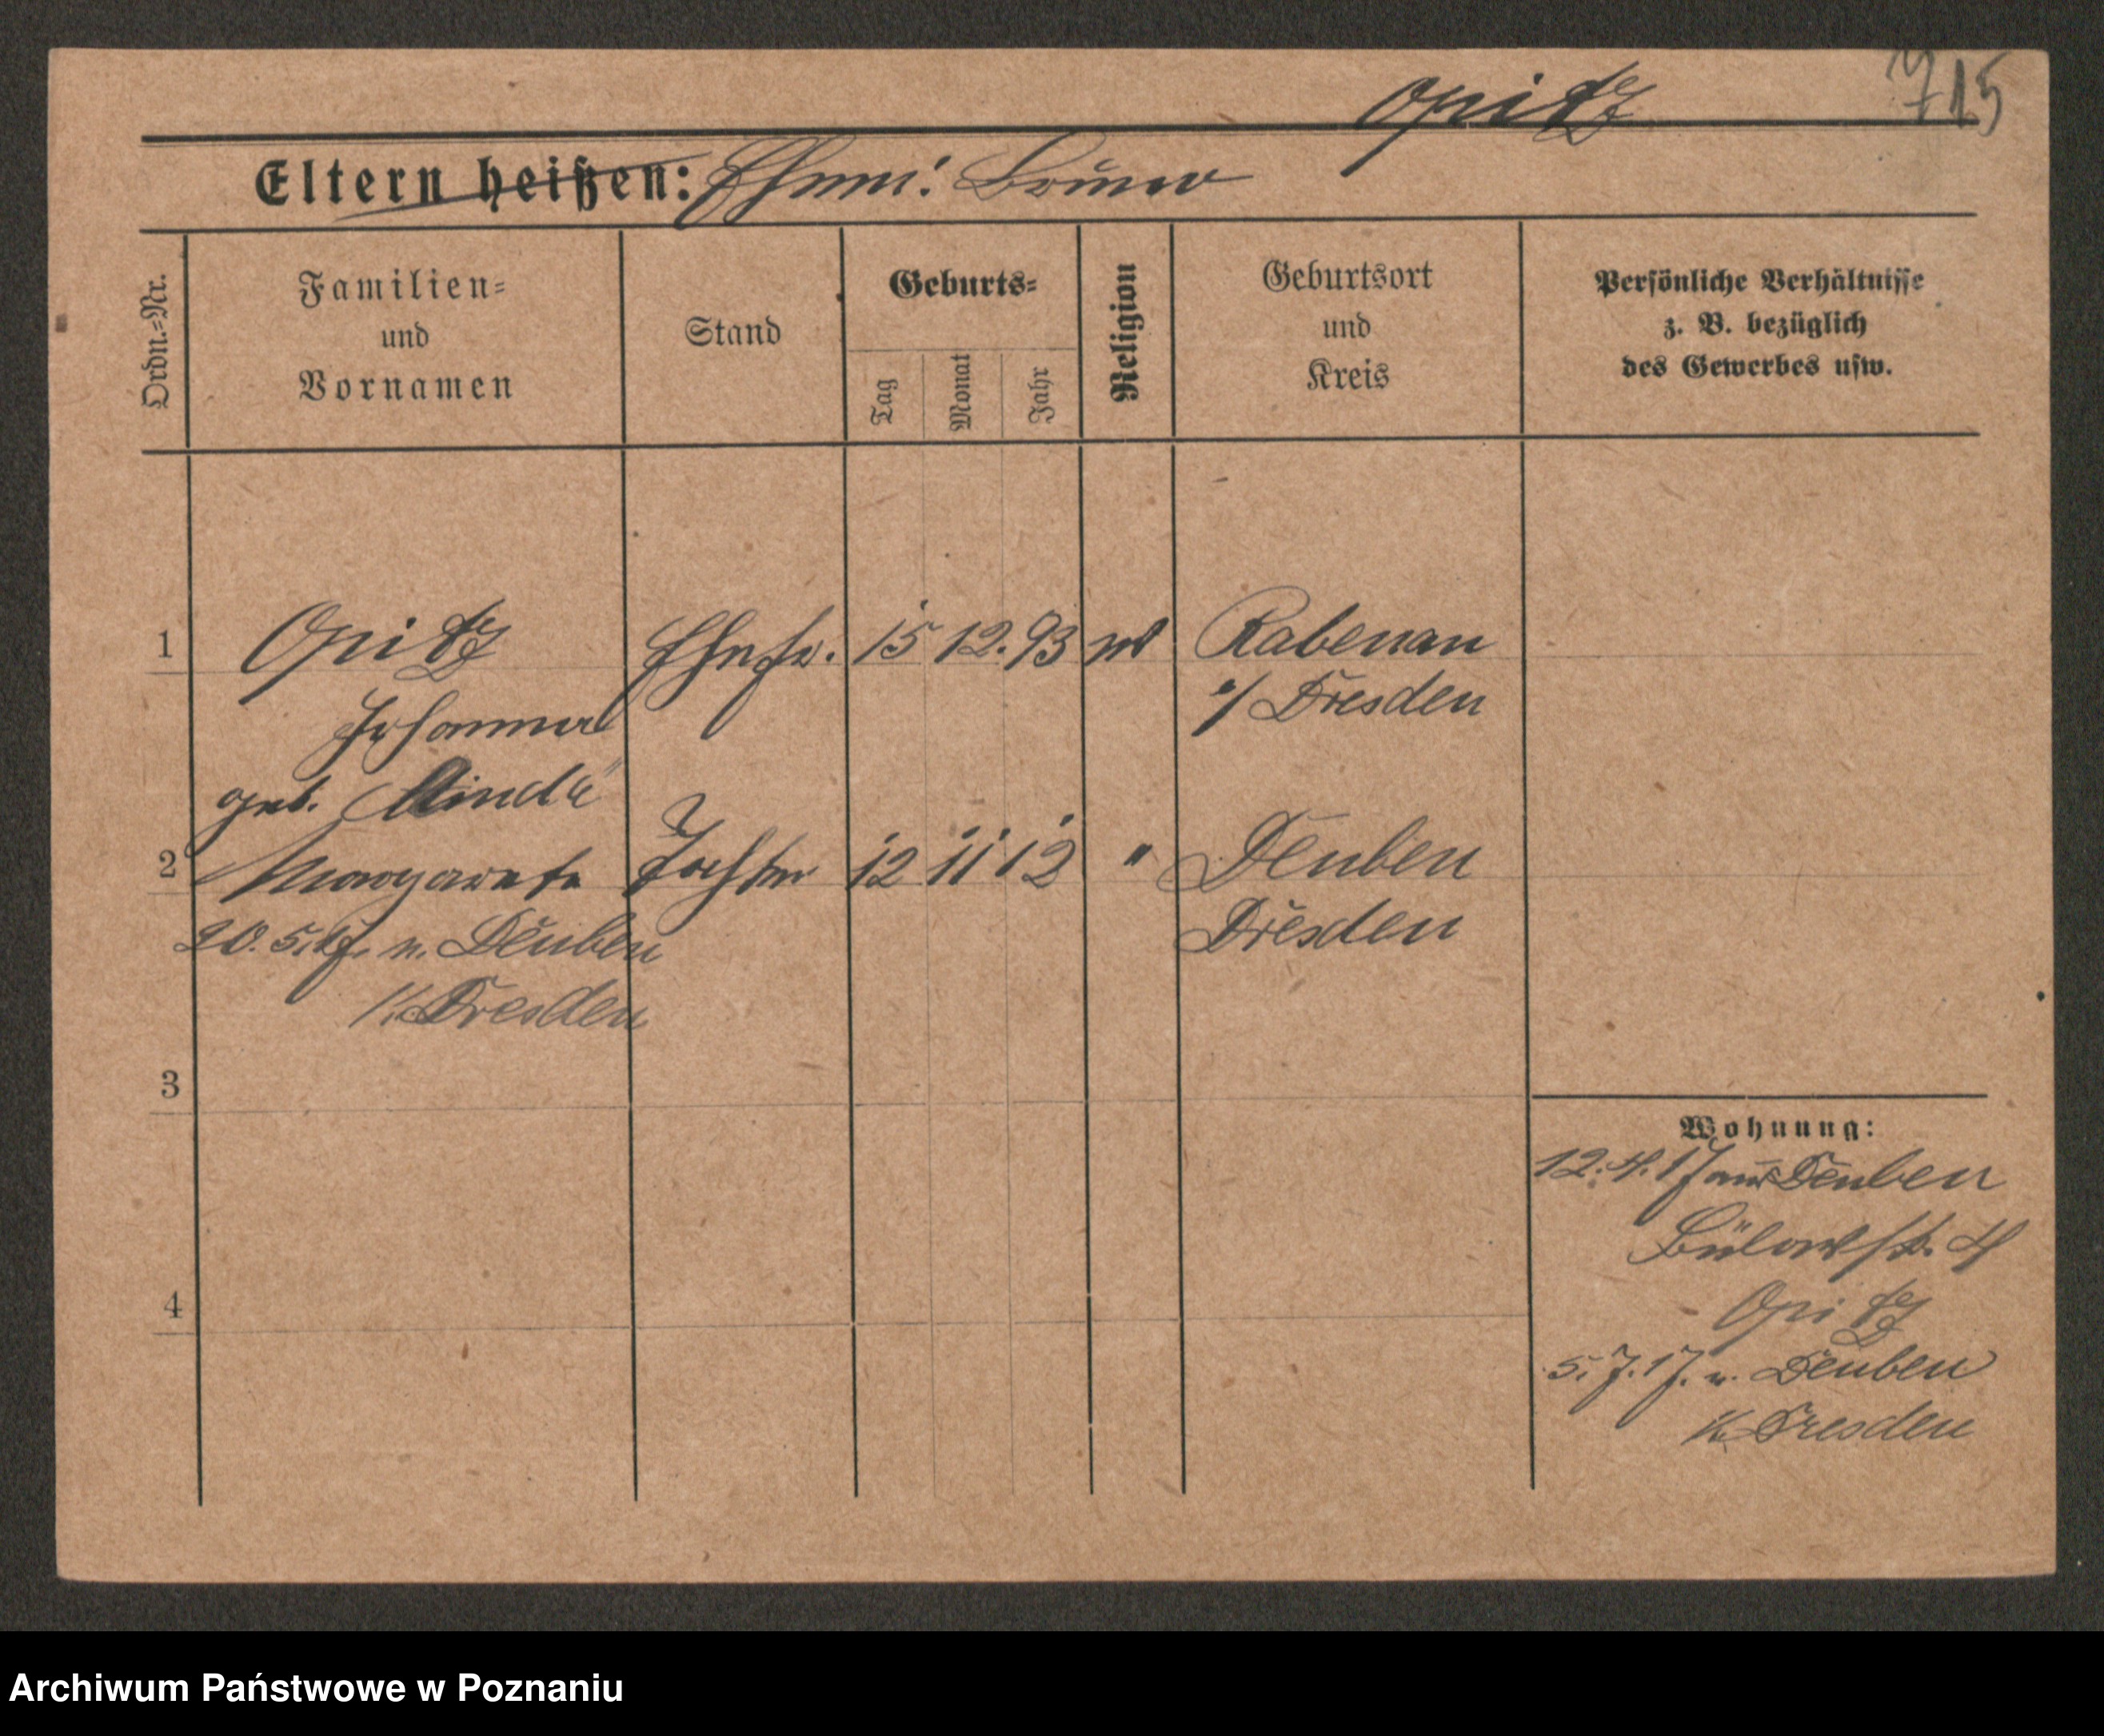 Opitz 715
Eltern heißen: Ehem: Bruno
Ordn.=Nr.
Familien=
und
Vornamen
Stand
Geburts=
Tag
Monat
Jahr
Religion
Geburtsort
und
Kreis
Persönliche Verhältnisse
z. B. bezüglich
des Gewerbes usw.
1 Opitz Ehefr. 15 12. 93 Rabenau
Johanna Dresden
geb.
2 Margarete Tochter 12 11 12 " Deuben
Dresden
20. 5. 17. n. Deuben
Dresden
3
4
Wohnung:
12. 4. 17 aus Deuben
Bülowstr. 4
Opitz
5. 7. 17. n. Deuben
Dresden
Archiwum Państwowe w Poznaniu